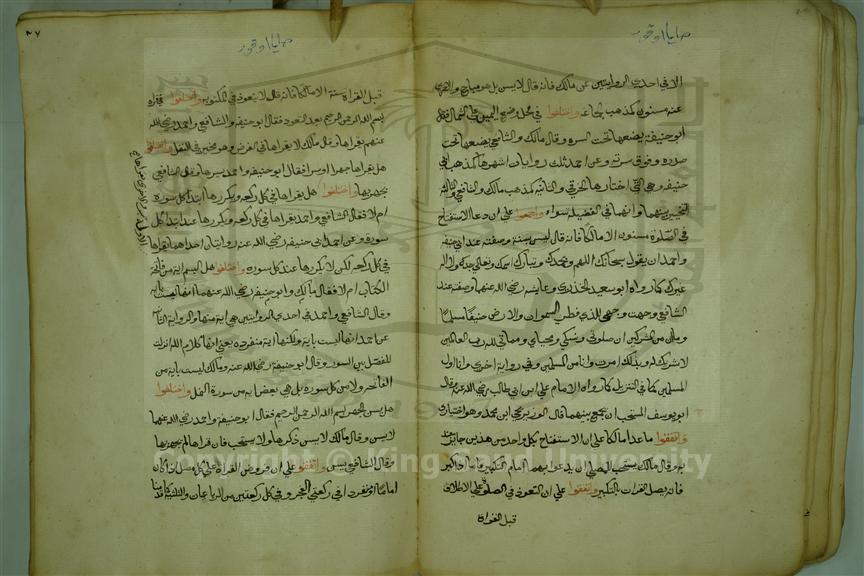 الا في احدى الروايتين عن مالك فانه قال لا يسن بل هو مباح والاخرى
عنه مسنون كمذهب الجماعة واختلفوا في محل وضع اليمين على الشمال فقال
ابو حنيفة يضعها تحت السرة وقال مالك والشافعي يضعها تحت
صدره وفوق سرته وعن احمد ثلث روايات اشهرها كمذهب ابي
حنيفة وهي التي اختارها الخرقي والثانية كمذهب مالك والشافعي والثالثة
التخيير بينهما وانهما في الفضيلة سواء واجمعوا على ان دعا الاستفتاح
في الصلوة مسنون الا مالكا فانه قال ليس بسنة وصفته عند ابي حنيفة
واحمد ان يقول سبحانك اللهم وبحمدك وتبارك اسمك وتعالى جدك ولا اله
غيرك كما رواه ابو سعيد الخدري وعايشه رضي الله عنهما وصفته عند
الشافعي وجهت وجهي للذي فطر السموات والارض حنيفا مسلما
وما انا من المشركين ان صلوتي ونسكي ومحياي ومماتي لله رب العالمين
لا شريك له وبذلك امرت وانا من المسلمين وفي رواية اخرى وانا اول
المسلمين كما في التنزيل كما رواه الامام علي ابن ابي طالب رضي الله عنه وقال
ابو يوسف المستحب ان يجمع بينهما قال الوزير يحيى ابن محمد وهو اختياري
واتفقوا ما عدا مالكا على ان الاستفتاح بكل واحد من هذين جايز معتد
به وقال مالك يستحب للمصلي ان يدعو بهما امام التكبير فاذا كبر
فانه يصل القرات بالتكبير واتفقوا على ان التعوذ في الصلوة على الاطلاق
قبل القراة
٣٧
قبل القراة سنة الا مالكا فانه قال لا يتعوذ في المكتوبة واختلفوا في قراة
بسم الله الرحمن الرحيم بعد التعوذ فقال ابو حنيفة والشافعي واحمد رضي الله
عنهم يقراها وقال مالك لا يقراها في الفرض وهو مخير في النفل واختلفوا
هل يقراها جهرا او سرا فقال ابو حنيفة واحمد يسرها وقال الشافعي
يجهر بها واختلفوا هل يقراها في كل ركعة ويكررها عند ابتدا كل سورة
ام لا فقال الشافعي واحمد يقراها في كل ركعة ويكررها عند ابتدا كل
سورة وعن احمد ابي حنيفة رضي الله عنه روايتان احداهما يقراها
في كل ركعة لكن لا يكررها عند كل سورة واختلفوا هل البسملة اية من فاتحة
الكتاب ام لا فقال مالك وابو حنيفة رضي الله عنهما انها ليست باية
وقال الشافعي واحمد في احدى الروايتين هي اية منها والرواية الثانية
عن احمد انها ليست باية ولكنها اية منفردة يعني انها كلام الله انزلت
للفصل بين السور وقال ابو حنيفة رضي الله عنه ومالك ليست باية من
الفاتحة ولا من كل سورة بل هي بعض اية من سورة النمل واختلفوا
هل يسن الجهر ببسم الله الرحمن الرحيم فقال ابو حنيفة واحمد رضي الله عنهما
لا يسن وقال مالك لا يسن ذكرها ولا يستحب فان قراها لم يجهر بها
وقال الشافعي يسن واتفقوا على ان فروض القراة على كل مسلم اذا كان
اماما او منفردا في ركعتي الفجر وفي كل ركعتين من الرباعيات والثلاثية
Copyright © King Saud University